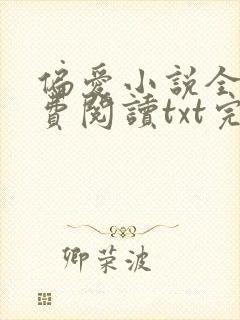 偏爱小说全
費閱讀txt完
卿荣波